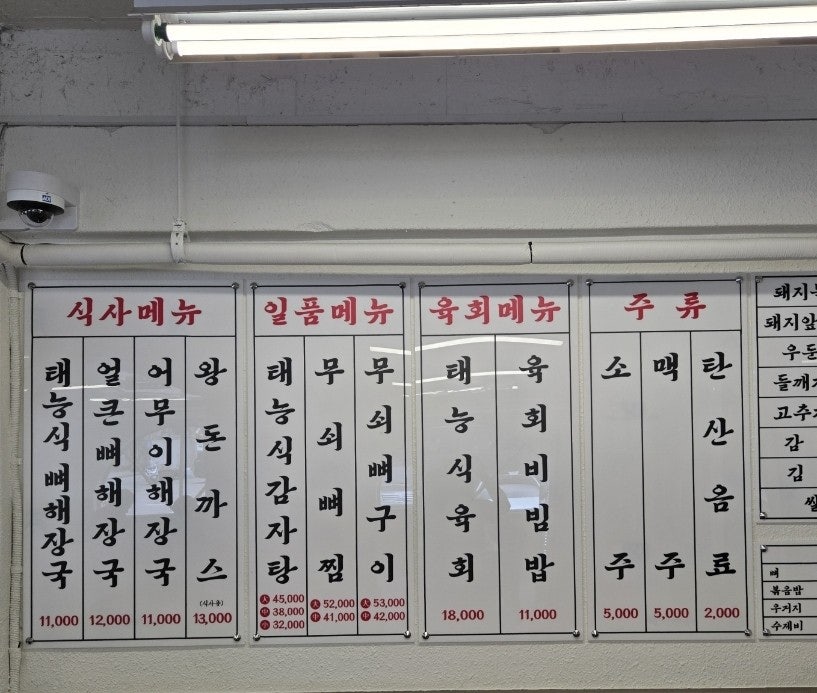 식사메뉴
태능식뼈해장국
11,000
얼큰뼈해장국
12,000
어무이해장국
11,000
왕돈까스
(식사용)
13,000
일품메뉴
태능식감자탕
大 45,000
中 38,000
小 32,000
무쇠뼈찜
大 52,000
中 41,000
무쇠뼈구이
大 53,000
中 42,000
육회메뉴
태능식육회
18,000
육회비빔밥
11,000
주류
소주
5,000
맥주
5,000
탄산음료
2,000
돼지
돼지앞
우둔
들깨
고추
감
김
쌀
뼈
볶음밥
우거지
수제비